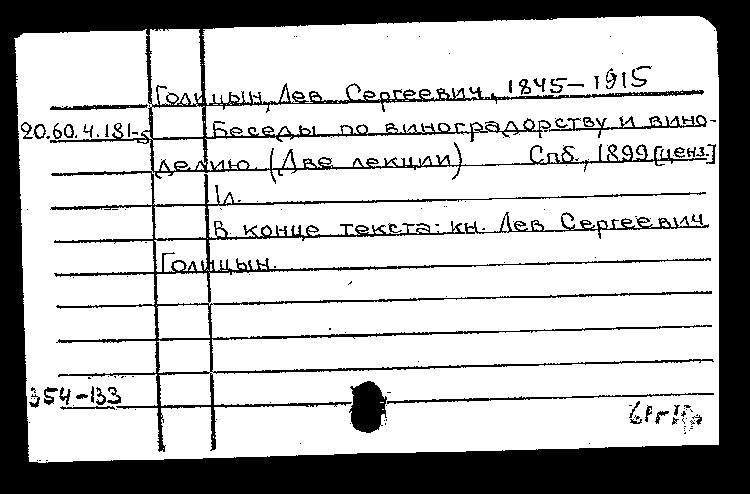 Голицын, Лев Сергеевич, 1845-1915
20.60.4.181-5 Беседы по виноградорству и вино-
делию. (Две лекции) Спб., 1899 [ценз.]
1л.
В конце текста: кн. Лев Сергеевич
Голицын.
354-133